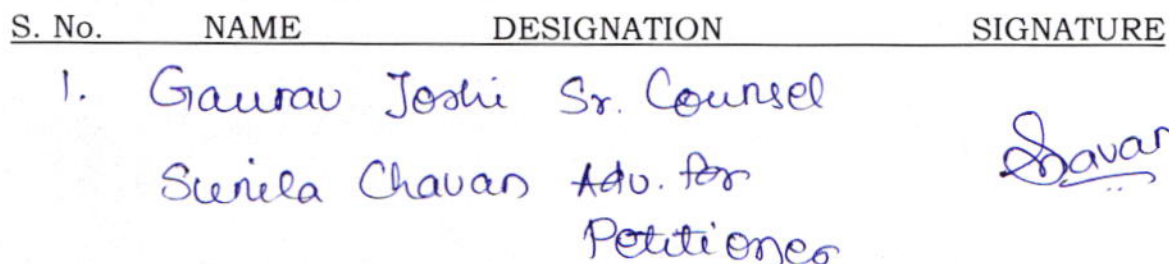 S. No. NAME DESIGNATION SIGNATURE
1. Gaurav Joshi Sr. Counsel
Sunila Chavan Adv. for
Petitioner